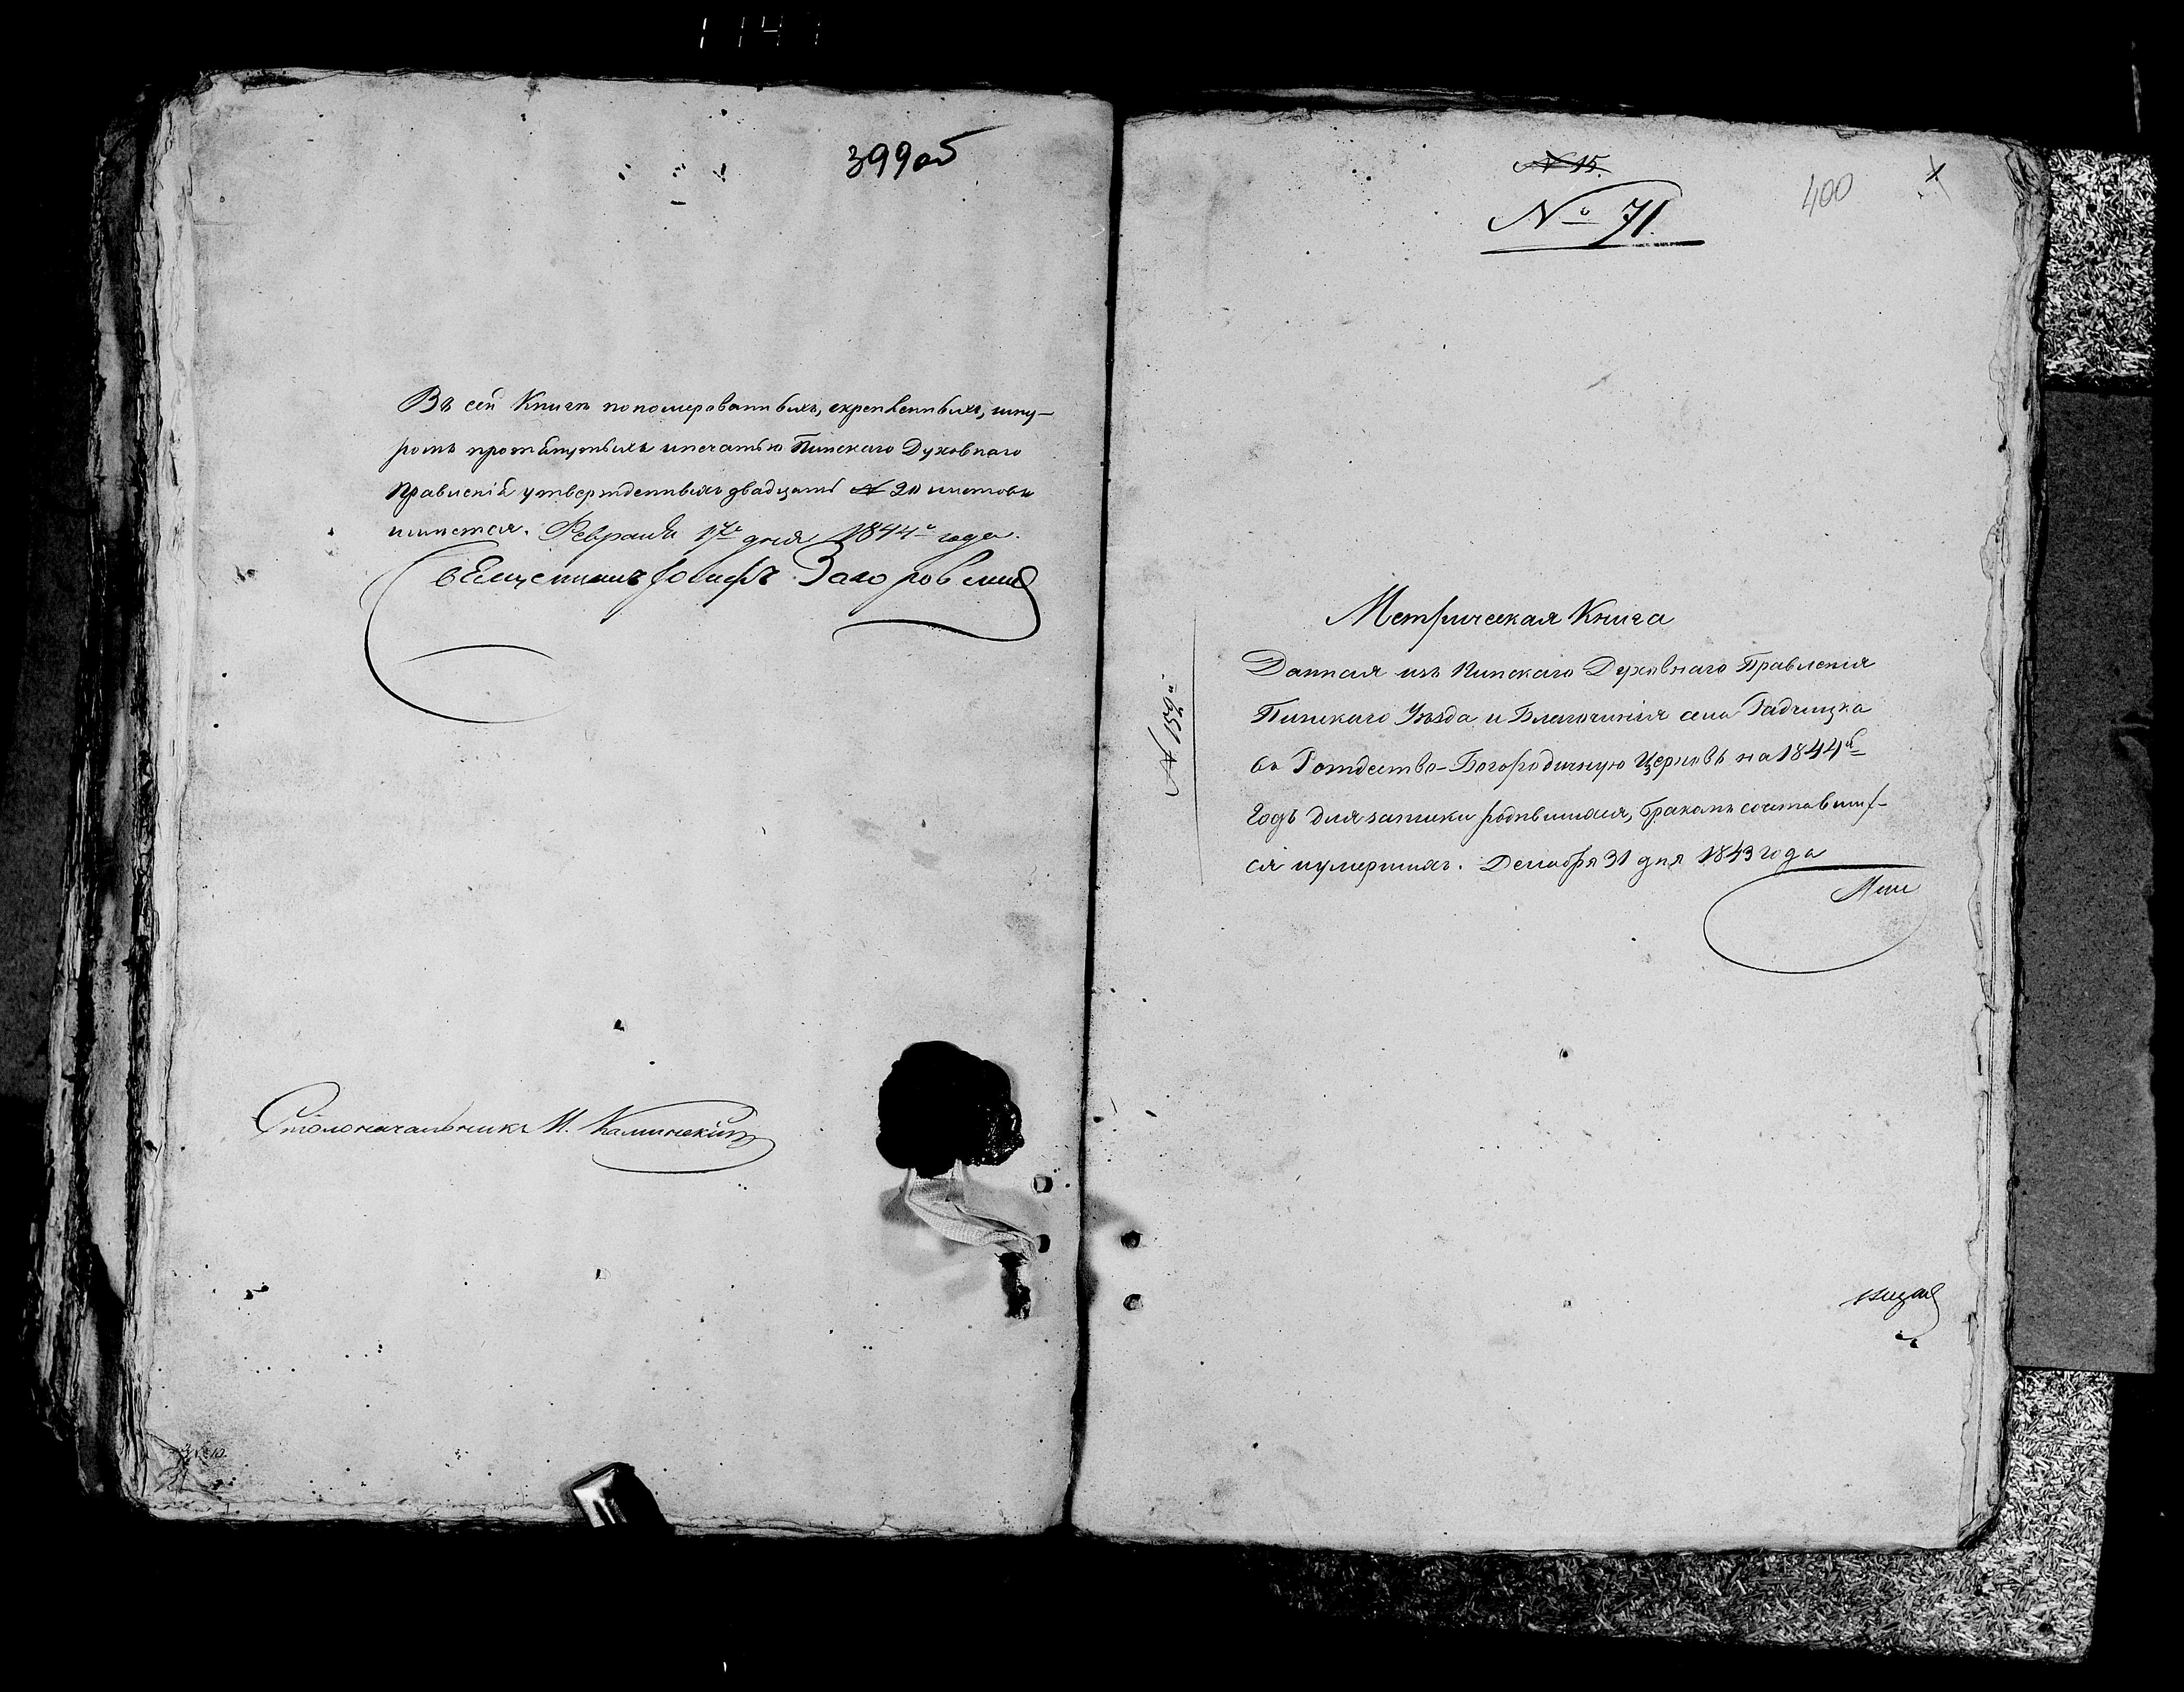 399об
Въ сей Книгѣ пономерованныхъ, скрепленныхъ, шну-
ромъ протянутыхъ и печатью Пинскаго Духовнаго
Правленія утвержденныхъ двадцать № 20 листовъ
имѣется. Февраля 17го дня 1844го года.
Священникъ Іосифъ
Столоначальникъ М. Калинскій
№ 15.
№ 71.
400
№ 159й
Метрическая Книга
Данная изъ Пинскаго Духовнаго Правленія
Пинскаго Уѣзда и Благочинія села Радчицка
въ Рождество-Богородичную Церковь на 1844й
Годъ для записки родившихся, бракомъ сочетавших-
ся и умершихъ. Декабря 31 дня 1843 года